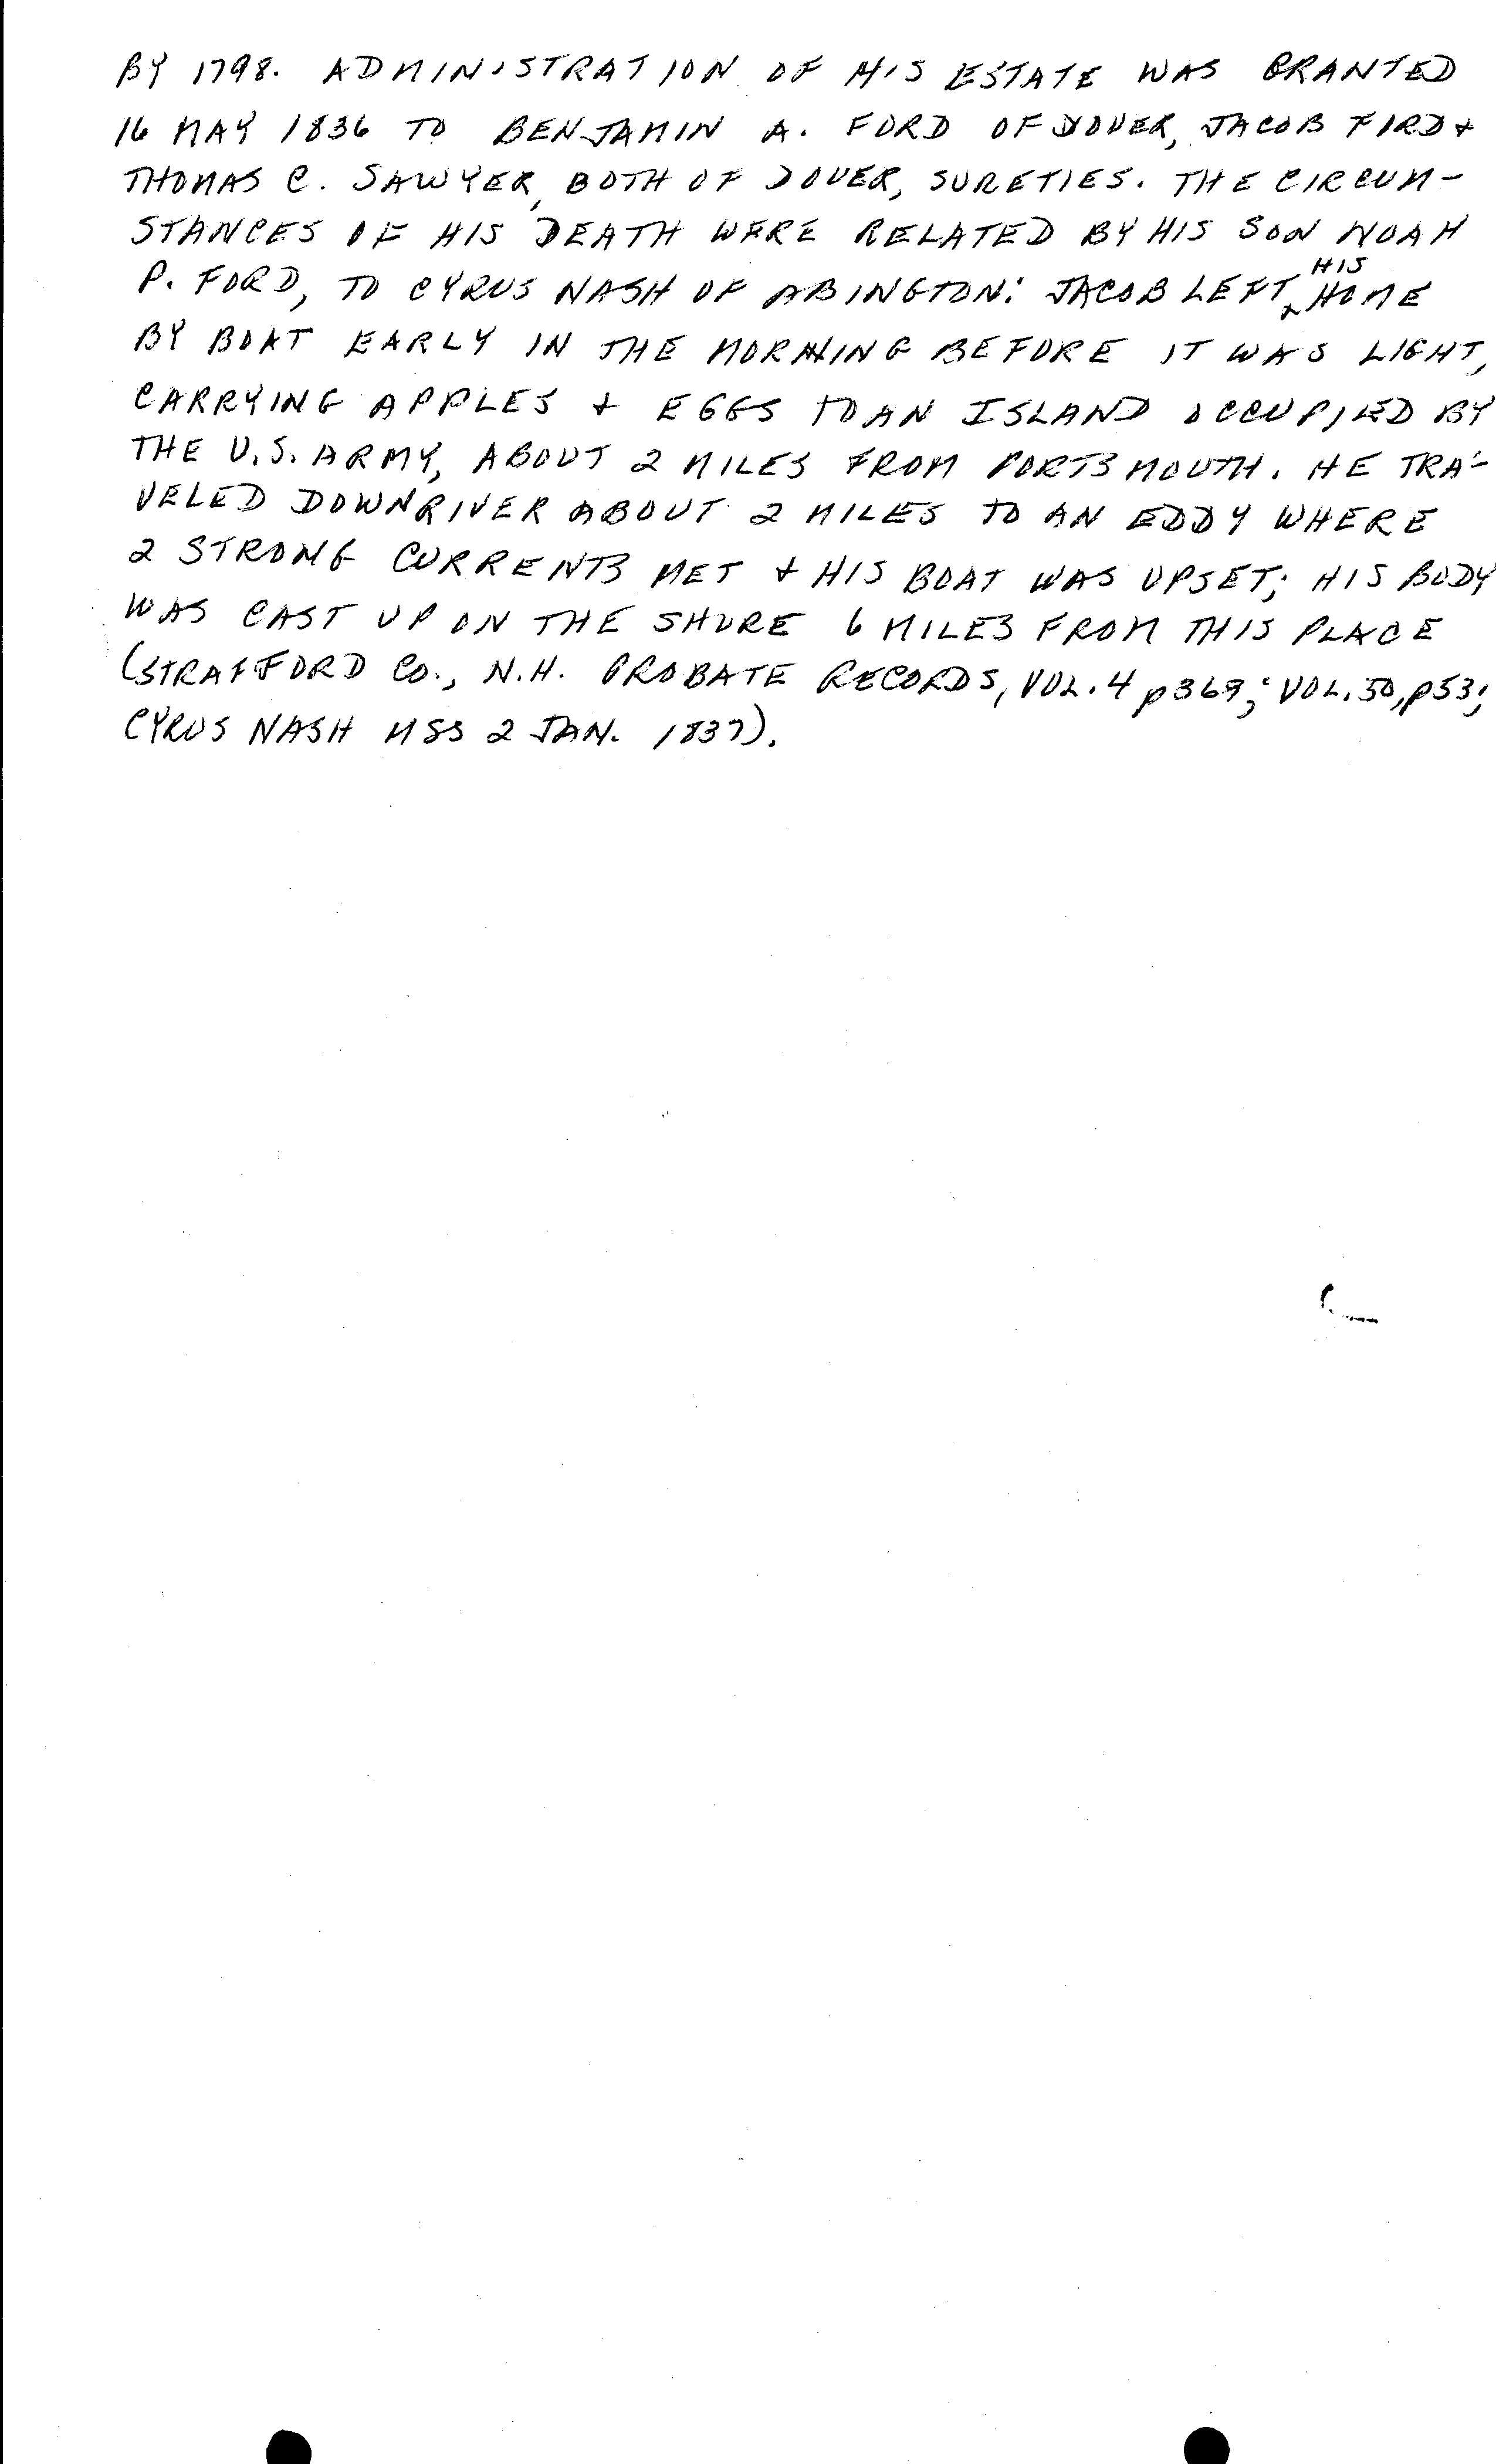 BY 1798. ADMINISTRATION OF HIS ESTATE WAS GRANTED
16 MAY 1836 TO BENJAMIN A. FORD OF DOVER, JACOB FORD +
THOMAS C. SAWYER, BOTH OF DOVER, SURETIES. THE CIRCUM-
STANCES OF HIS DEATH WERE RELATED BY HIS SON NOAH
P. FORD, TO CYRUS NASH OF ABINGTON: JACOB LEFT HIS HOME
BY BOAT EARLY IN THE MORNING BEFORE IT WAS LIGHT,
CARRYING APPLES + EGGS TO AN ISLAND OCCUPIED BY
THE U.S. ARMY, ABOUT 2 MILES FROM PORTSMOUTH. HE TRA-
VELED DOWNRIVER ABOUT 2 MILES TO AN EDDY WHERE
2 STRONG CURRENTS MET + HIS BOAT WAS UPSET; HIS BODY
WAS CAST UP ON THE SHORE 6 MILES FROM THIS PLACE
(STRAFFORD CO., N.H. PROBATE RECORDS, VOL. 4 p369; VOL. 50, p53;
CYRUS NASH MSS 2 JAN. 1837).